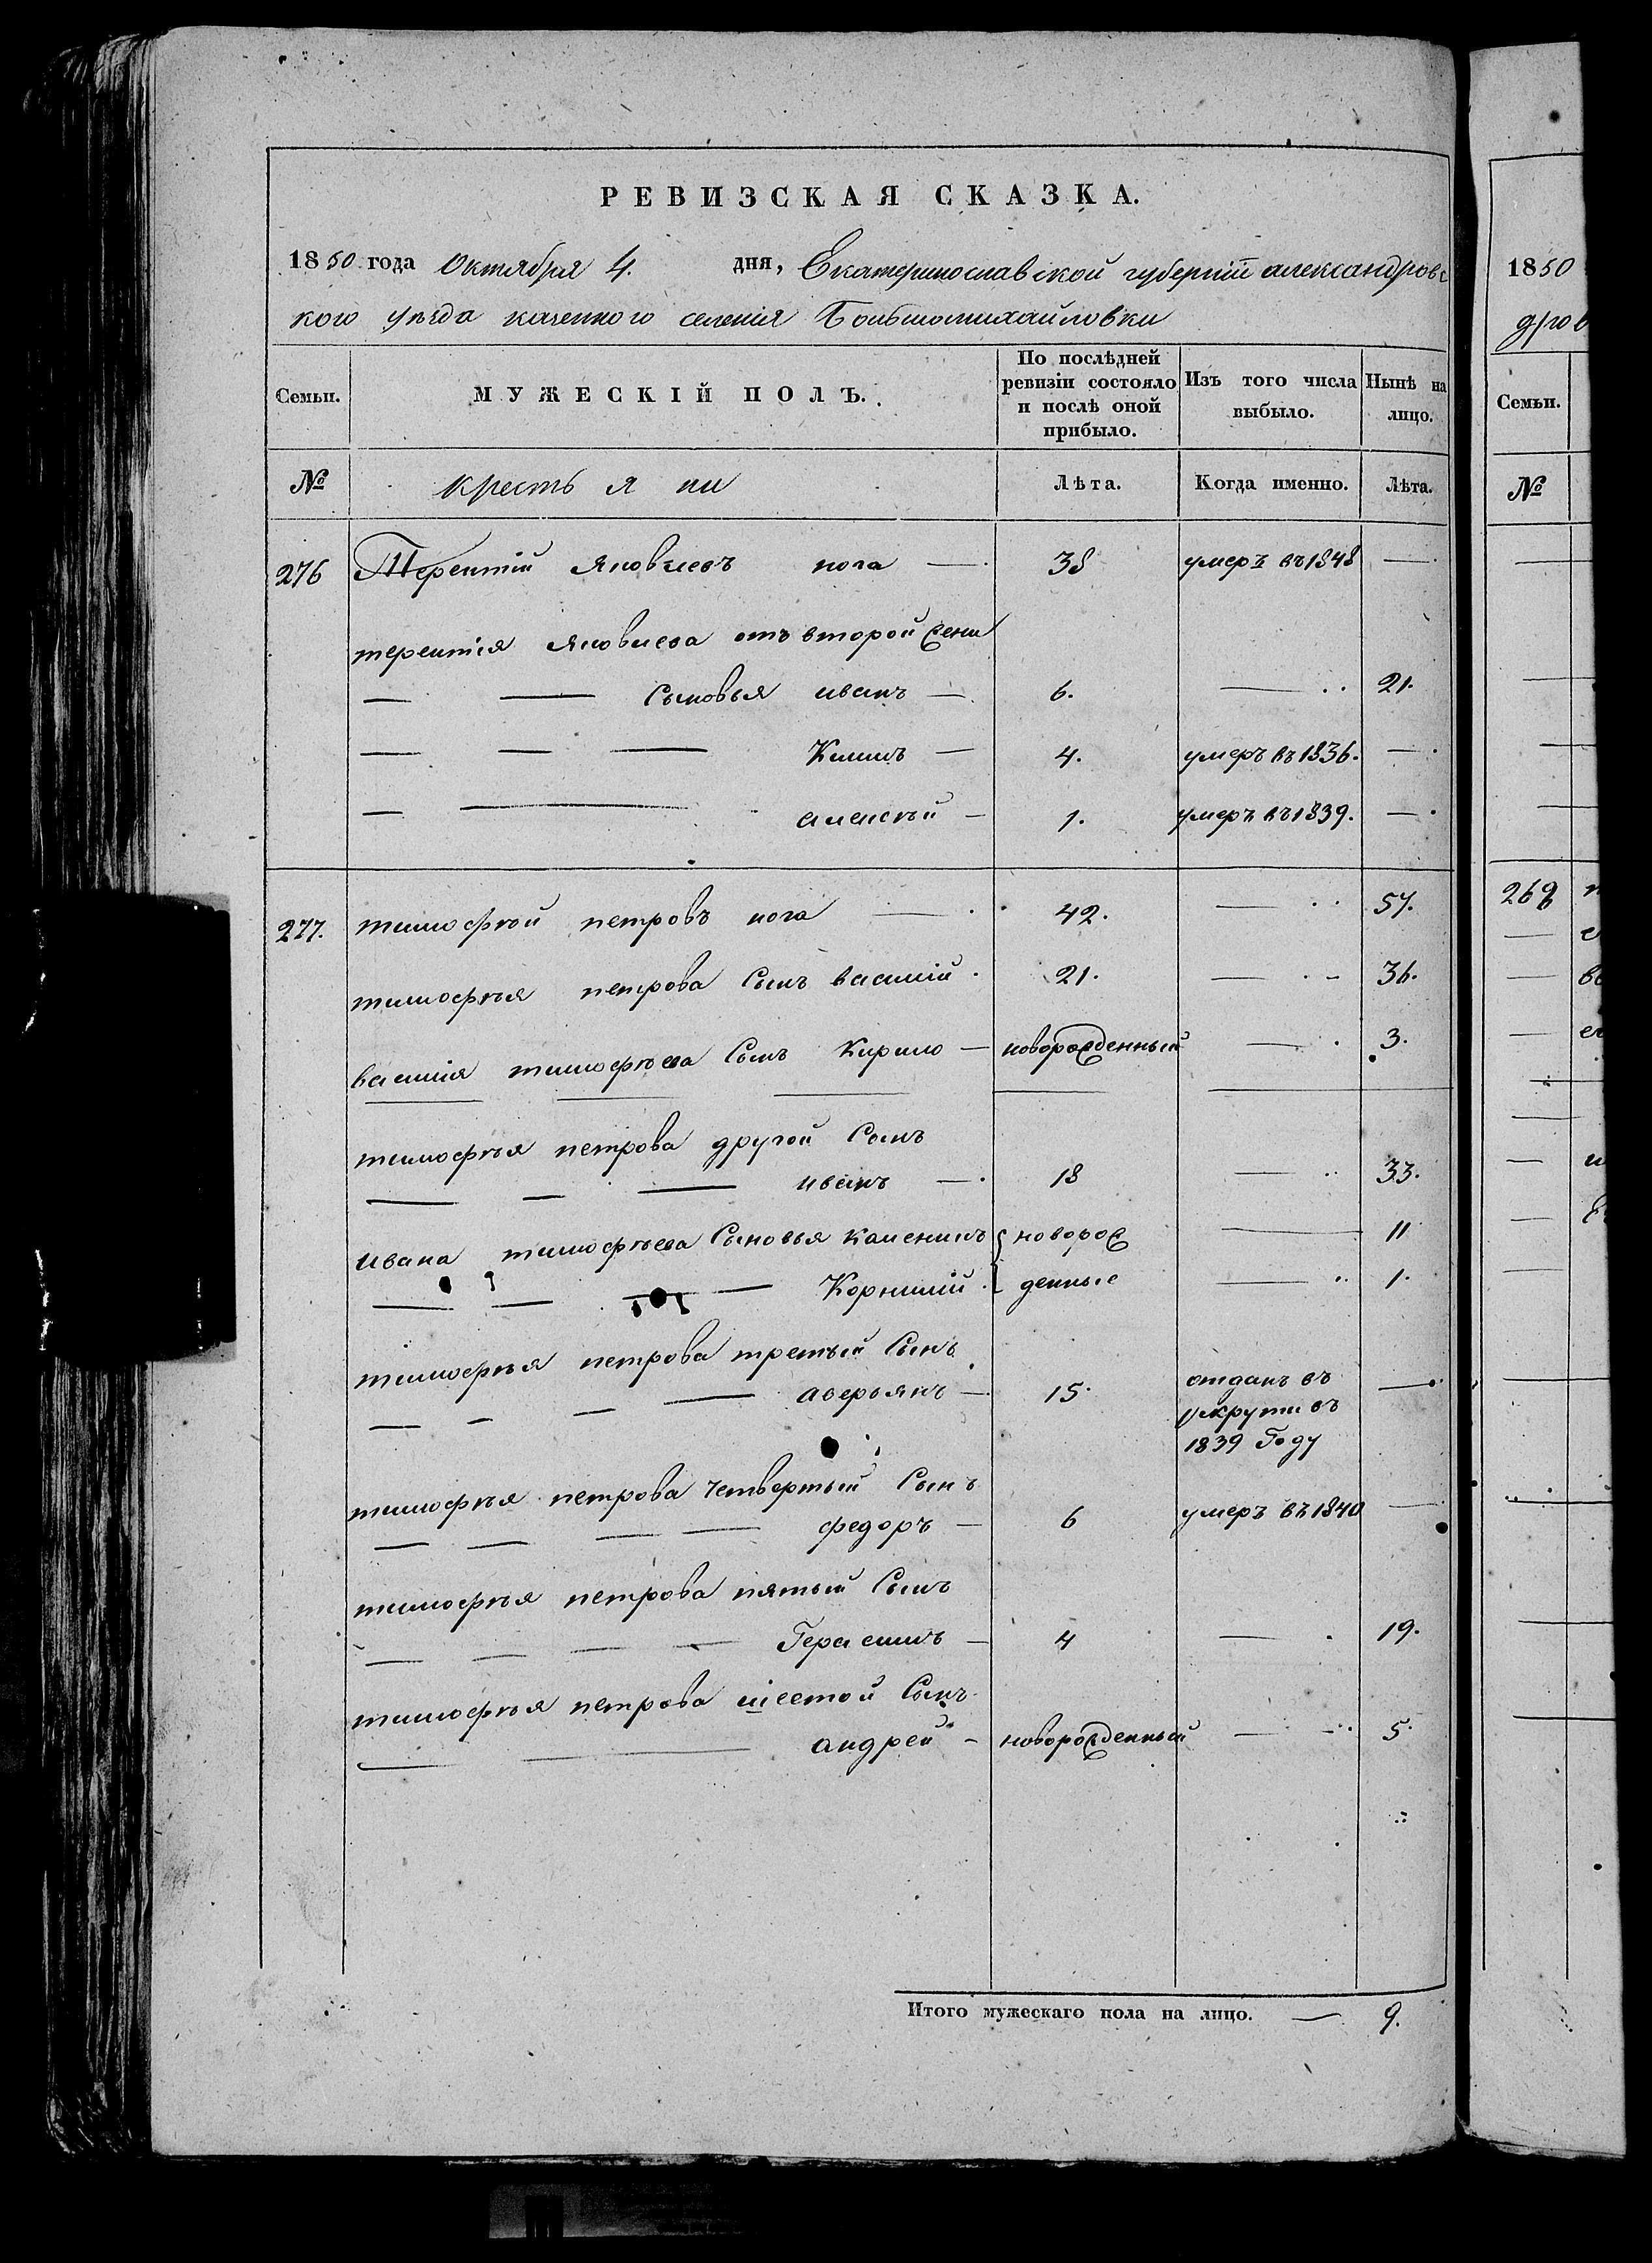 РЕВИЗСКАЯ СКАЗКА.
1850 года Октября 4. дня, Екатеринославской губернии александровс
кого уезда казенного селения Большомихайловки
Семьи. МУЖЕСКІЙ ПОЛЪ. По послѣдней ревизіи состояло и послѣ оной прибыло. Изъ того числа выбыло. Нынѣ на лицо.
№ крестьяни Лѣта. Когда именно. Лѣта.
276 Терентій Яковлевъ нога — 38 умеръ въ 1848 —
терентія Яковлева отъ второй жени
— — Сыновья иванъ — 6. — 21.
— — — Климъ — 4. умеръ въ 1836. —
— — алексѣй — 1. умеръ въ 1839. —
277. тимофѣй петровъ нога — 42. — 57.
тимофѣя петрова Сынъ василій 21. — 36.
василія тимофѣева Сынъ Кирило — новорожденный — 3.
тимофѣя петрова другой Сынъ
— — — иванъ — 18 — 33.
ивана тимофѣева Сыновья { новорож — 11
— — — Корнилій { денные — 1.
тимофѣя петрова третый Сынъ
— — — — аверьянъ — 15. отданъ въ —
рекрути въ
1839 Году
тимофѣя петрова четвертый Сынъ
— — — — федоръ — 6 умеръ въ 1840 —
тимофѣя петрова пятый Сынъ
— — — — Герасимъ — 4 — 19.
тимофѣя петрова шестой Сынъ
— — андрей — новорожденный — 5.
Итого мужескаго пола на лицо. — 9.
1850
Семьи.
№
269